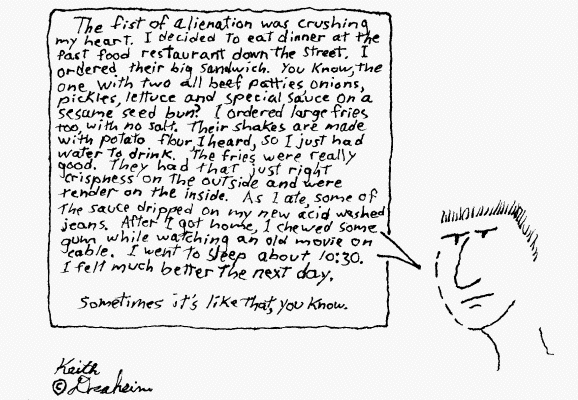 The fist of alienation was crushing
my heart. I decided to eat dinner at the
fast food restaurant down the street. I
ordered their big sandwich. You know, the
one with two all beef patties onions,
pickles, lettuce and special sauce on a
sesame seed bun? I ordered large fries
too, with no salt. Their shakes are made
with potato flour I heard, so I just had
water to drink. The fries were really
good. They had that just right
'crispness' on the outside and were
tender on the inside. As I ate, some of
the sauce dripped on my new acid washed
jeans. After I got home, I chewed some
gum while watching an old movie on
cable. I went to sleep about 10:30.
I felt much better the next day.
Sometimes it's like that, you know.
Keith
©